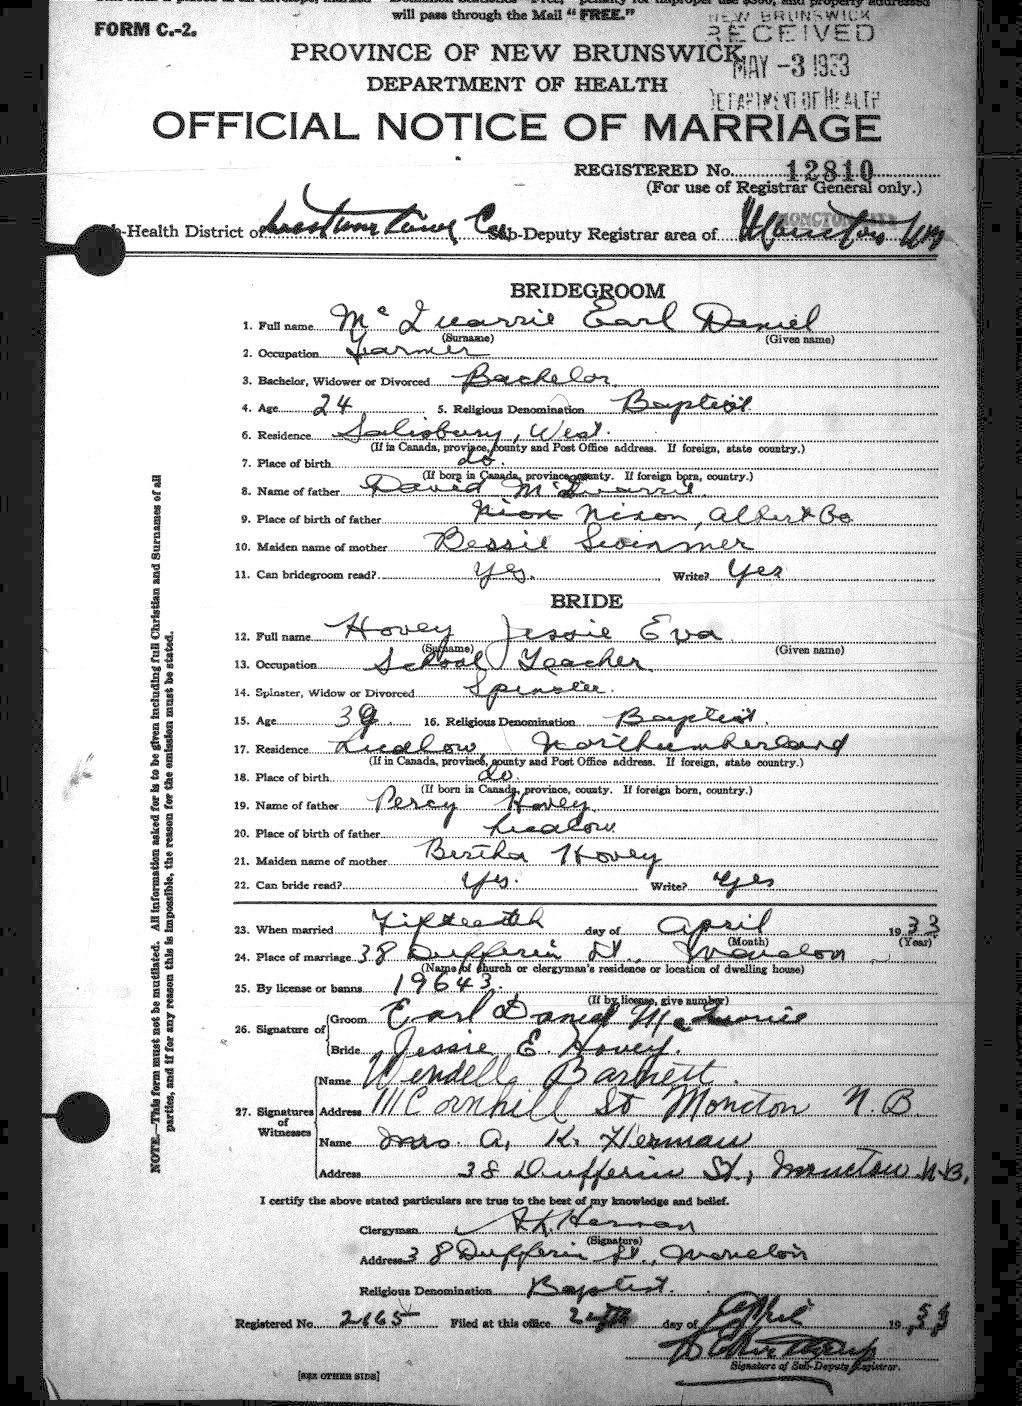 will pass through the Mail "FREE."
FORM C.-2.
NEW BRUNSWICK
RECEIVED
MAY -3 1933
DEPARTMENT OF HEALTH
PROVINCE OF NEW BRUNSWICK
DEPARTMENT OF HEALTH
OFFICIAL NOTICE OF MARRIAGE
REGISTERED No. 12810
(For use of Registrar General only.)
-Health District of Westmorland Co Sub-Deputy Registrar area of Moncton
BRIDEGROOM
1. Full name McQuarrie Earl Daniel
(Surname) (Given name)
2. Occupation Farmer
3. Bachelor, Widower or Divorced Bachelor
4. Age 24 5. Religious Denomination Baptist
6. Residence Salisbury, West.
(If in Canada, province, county and Post Office address. If foreign, state country.)
7. Place of birth do.
(If born in Canada, province, county. If foreign born, country.)
8. Name of father David McQuarrie
9. Place of birth of father Nixon, Albert Co
10. Maiden name of mother Bessie
11. Can bridegroom read? Yes. Write? Yes
BRIDE
12. Full name Hovey Jessie Eva
(Surname) (Given name)
13. Occupation School Teacher
14. Spinster, Widow or Divorced Spinster.
15. Age 39 16. Religious Denomination Baptist.
17. Residence Ludlow Northumberland
(If in Canada, province, county and Post Office address. If foreign, state country.)
18. Place of birth do.
(If born in Canada, province, county. If foreign born, country.)
19. Name of father Percy Hovey
20. Place of birth of father Ludlow
21. Maiden name of mother Bertha Hovey
22. Can bride read? Yes. Write? Yes
23. When married Fifteenth day of April 1933
(Month) (Year)
24. Place of marriage 38 Dufferin St., Moncton
(Name of church or clergyman's residence or location of dwelling house)
25. By license or banns 19643.
(If by license, give number)
26. Signature of Groom Earl Daniel McQuarrie
Bride Jessie E. Hovey.
27. Signatures of Witnesses
Name Wendell Barnett.
Address 111 Cornhill St Moncton N.B.
Name Mrs. A. K. Herman
Address 38 Dufferin St., Moncton N.B.
I certify the above stated particulars are true to the best of my knowledge and belief.
Clergyman A.K. Herman
(Signature)
Address 38 Dufferin St., Moncton
Religious Denomination Baptist.
Registered No. 2665 Filed at this office day of April 1933
Signature of Sub-Deputy Registrar.
[SEE OTHER SIDE]
NOTE.—This form must not be mutilated. All information asked for is to be given including full Christian and Surnames of all
parties, and if for any reason this is impossible, the reason for the emission must be stated.